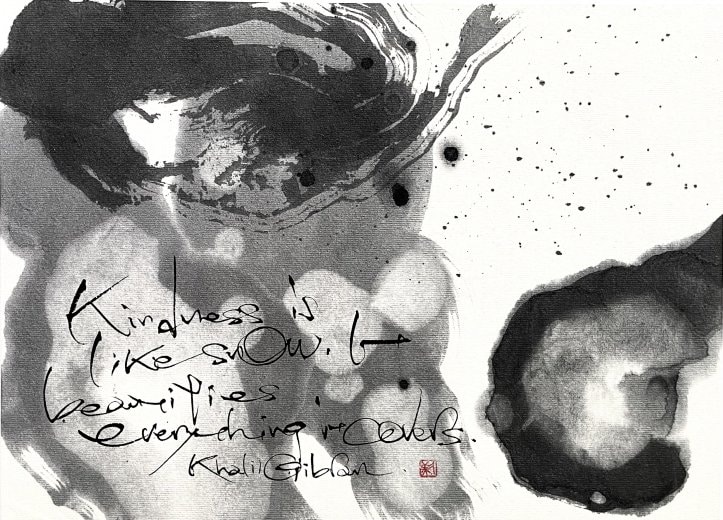 Kindness is
like snow. It
beautifies
everything it covers.
Khalil Gibran